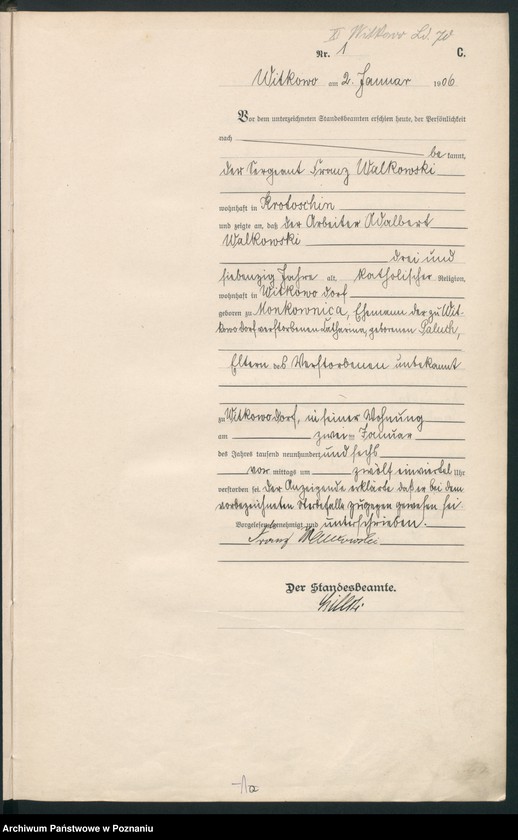 Witkowo Ld.
Nr. 1 C.
Witkowo am 2. Januar 1906
Vor dem unterzeichneten Standesbeamten erschien heute, der Persönlichkeit
nach
be kannt,
der Sergeant Franz Walkowski
wohnhaft in Krotoschin
und zeigte an, daß der Arbeiter Adalbert
Walkowski
drei und
siebenzig Jahre alt, katholischer Religion,
wohnhaft in Witkowo dorf
geboren zu Monkownica, Ehemann der zu Wit-
kowo dorf verstorbenen Katharina, geborenen Paluch,
Eltern des Verstorbenen unbekannt
zu Witkowo dorf, in seiner Wohnung
am zwei ten Januar
des Jahres tausend neunhundert und sechs
vor mittags um zwölf einviertel Uhr
verstorben sei. Der Anzeigende erklärte daß er bei dem
vorbezeichneten Sterbefalle zugegen gewesen sei.
Vorgelesen, genehmigt und unterschrieben.
Franz Walkowski
Der Standesbeamte.
1a
Archiwum Państwowe w Poznaniu